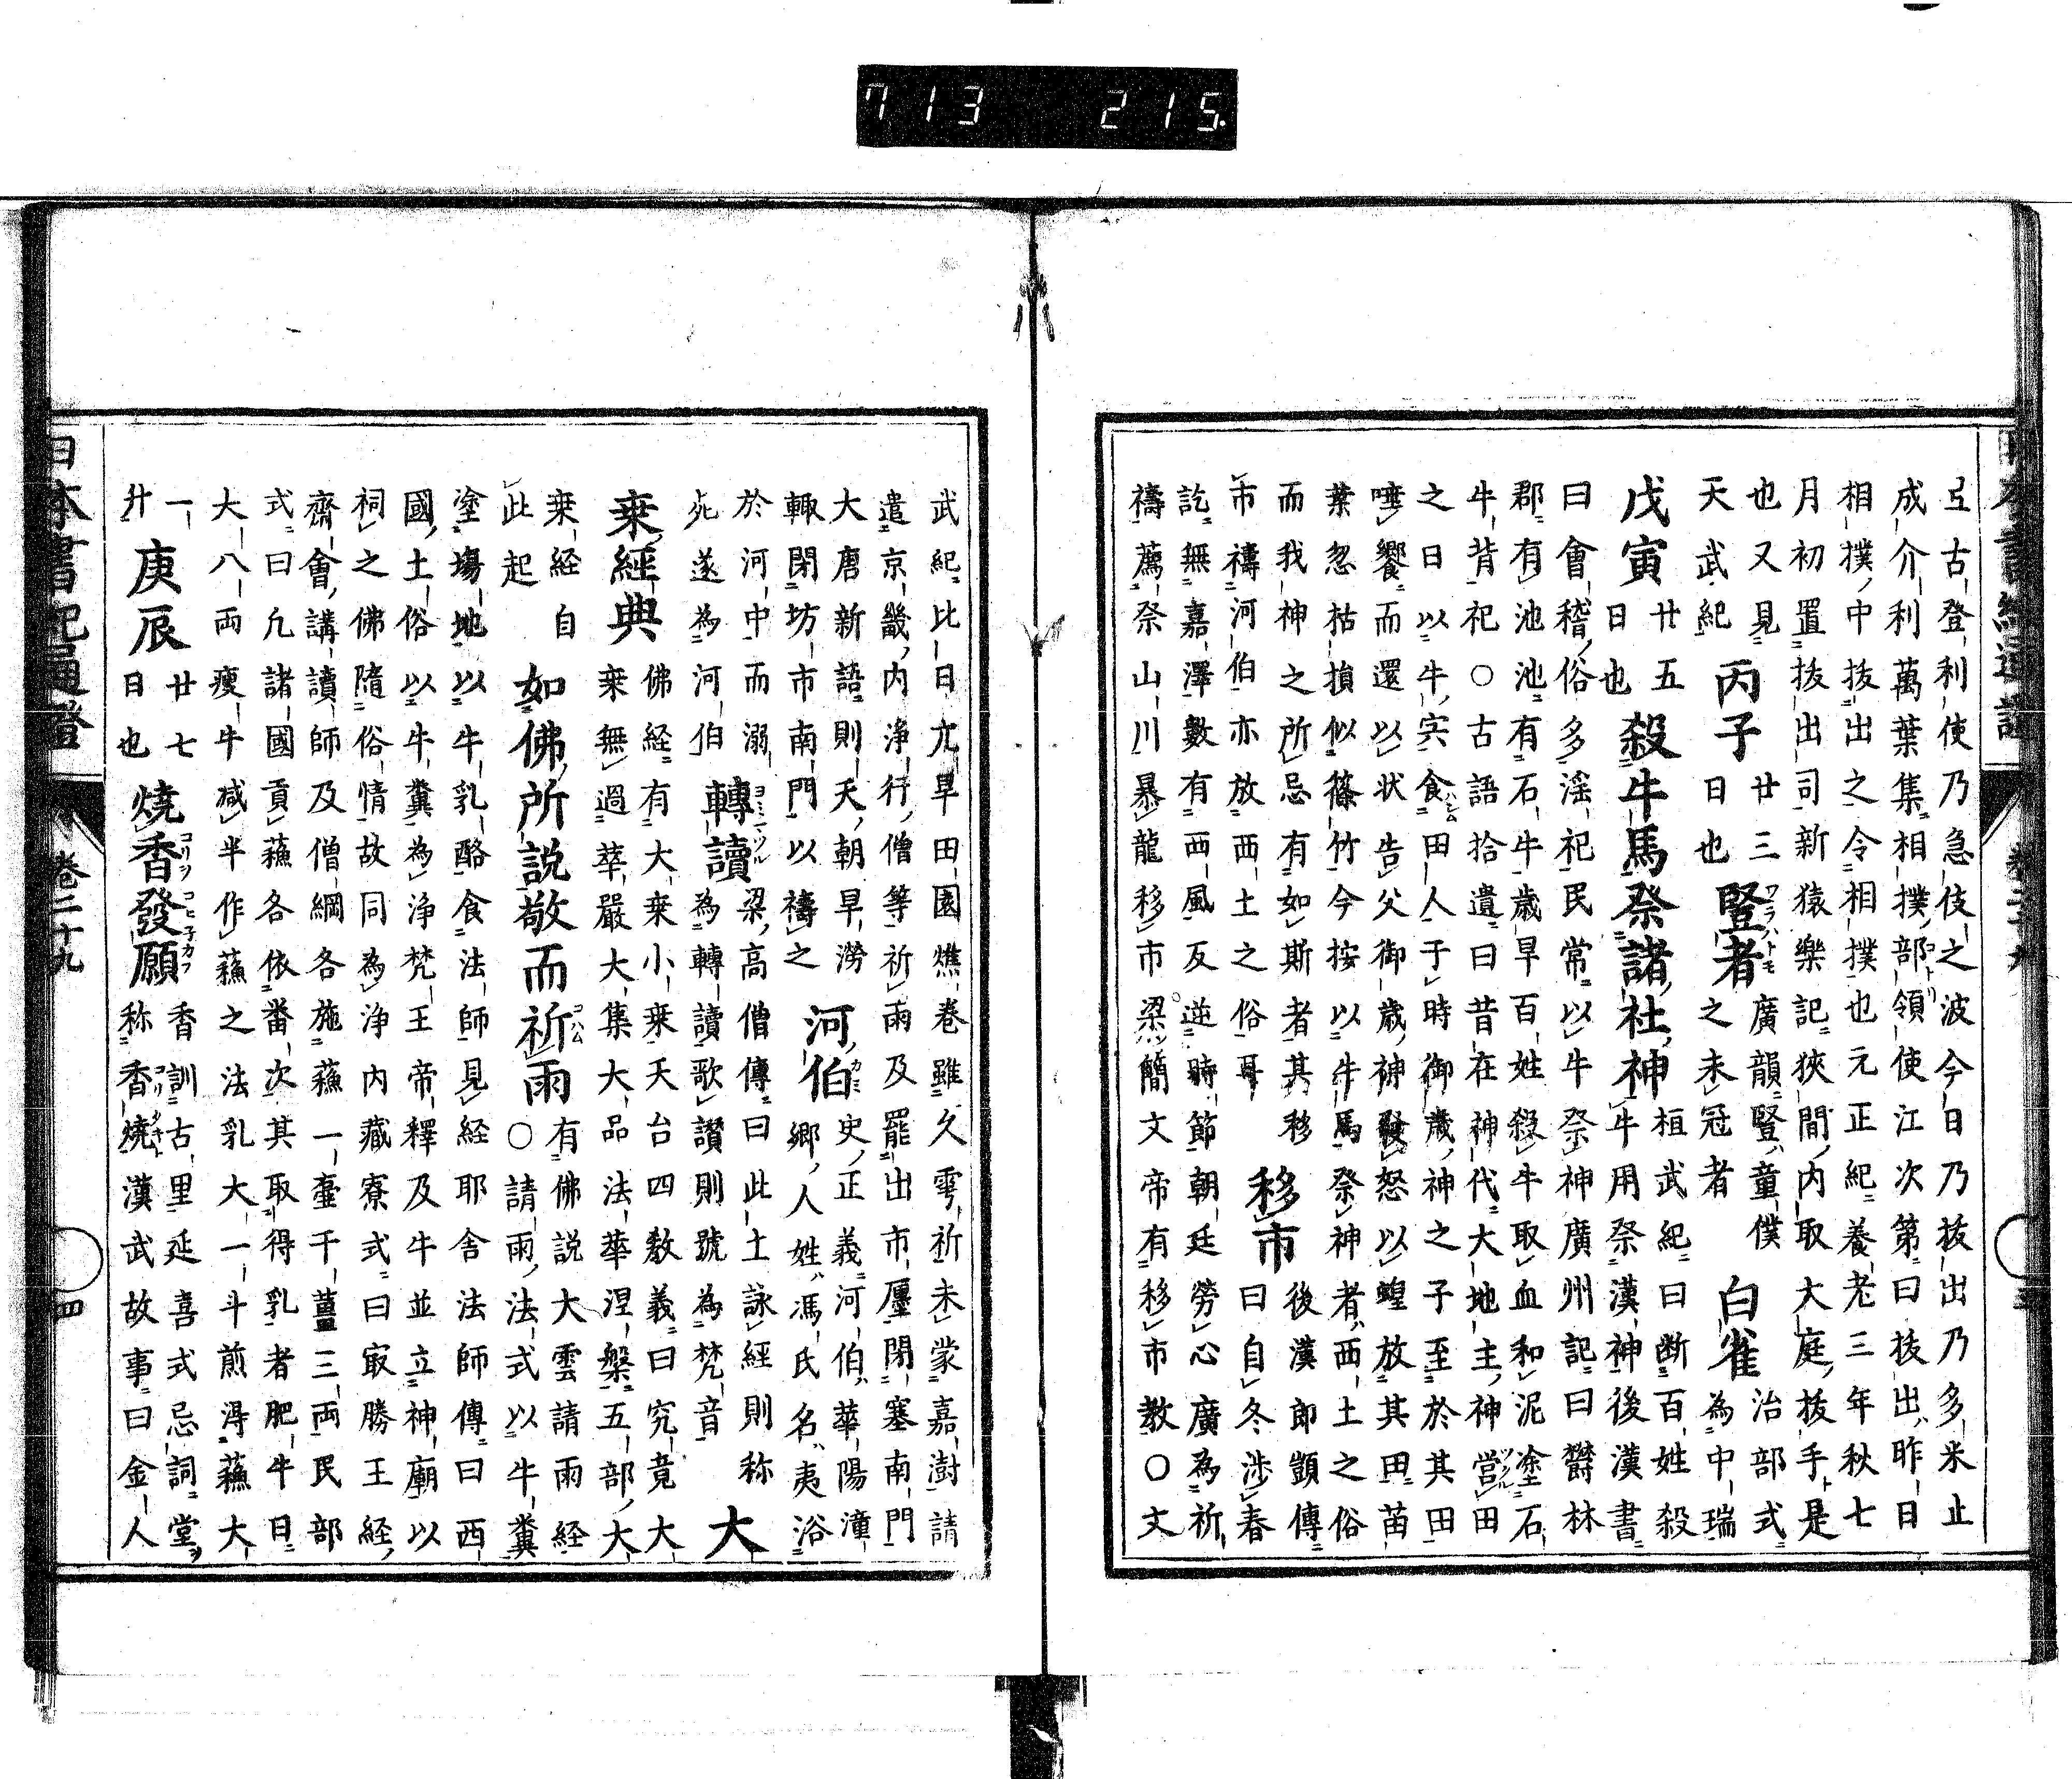 713 215.
弖古登利使乃急伎之波今日乃抜出乃多米止
成介利萬葉集相撲部領使江次第曰抜出昨日
相撲中抜出之令相撲也元正紀養老三年秋七
月初置抜出司新猿樂記狹間内取大庭抜手是
也又見
天武紀
丙子
廿三
日也
豎者
廣韻豎童僕
之未冠者
白雀
治部式
為中瑞
戊寅
廿五
日也
殺牛馬祭諸社神
桓武紀曰断百姓殺
牛用祭漢神後漢書
曰會稽俗多淫祀民常以牛祭神廣州記曰欝林
郡有池池有石牛歳旱百姓殺牛取血和泥塗石
牛背祀○古語拾遺曰昔在神代大地主神営田
之日以牛宍食田人于時御歳神之子至於其田
唾饗而還以状告父御歳神發怒以蝗放其田苗
葉忽枯損似篠竹今按以牛馬祭神者西土之俗
而我神之所忌有如斯者其移
市禱河伯亦放西土之俗耳
移市
後漢郎顗傳
曰自冬渉春
訖無嘉澤數有西風反逆時節朝廷勞心廣為祈
禱薦祭山川暴龍移市梁簡文帝有移市教○文
武紀比日亢旱田園燋卷雖久雩祈未蒙嘉澍請
遣京畿内浄行僧等祈雨及罷出市廛閉塞南門
大唐新語則天朝旱澇
輙閉坊市南門以禱之
河伯
史正義河伯華陽潼
郷人姓馮氏名夷浴
於河中而溺
死遂為河伯
轉讀
梁高僧傳曰此土詠經則称
為轉讀歌讃則號為梵音
大
乗經典
佛経有大乗小乗天台四教義曰究竟大
乗無過華嚴大集大品法華涅槃五部大
乗経自
此起
如佛所説敬而祈雨
有佛説大雲請雨経
○請雨法式以牛糞
塗塲地以牛乳酪食法師見経耶舎法師傳曰西
國土俗以牛糞為浄梵王帝釋及牛並立神廟以
祠之佛隨俗情故同為浄内藏寮式曰㝡勝王経
齋會講讀師及僧綱各施蘓一壷干薑三両民部
式曰凢諸國貢蘓各依畨次其取得乳者肥牛日
大八両痩牛減半作蘓之法乳大一斗煎淂蘓大
一
升
庚辰
廿七
日也
焼香發願
香訓古里延喜式忌詞堂
称香燒漢武故事曰金人
日本書紀通證
卷二十九
四